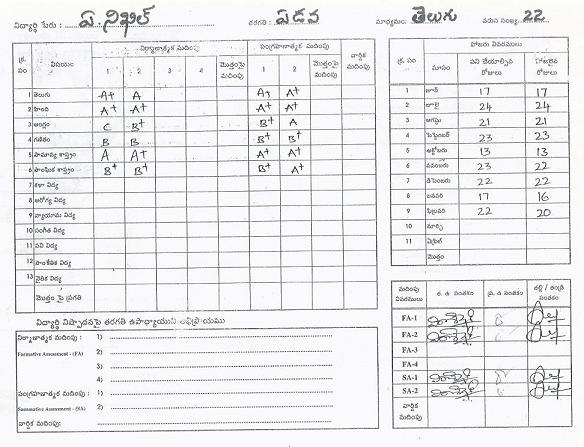 విద్యార్థి పేరు : ఏ. నిఖిల్ తరగతి : ఏడవ మాధ్యమం: తెలుగు వరుస సంఖ్య: 22
క్ర. సం విషయం నిర్మాణాత్మక మదింపు సంగ్రహణాత్మక మదింపు వార్షిక మదింపు
1 2 3 4 మొత్తంపై మదింపు 1 2 మొత్తంపై మదింపు
1 తెలుగు A+ A A+ A+
2 హింది A+ A+ A+ A+
3 ఆంగ్లం C B+ B+ A
4 గణితం B B B B
5 సామాన్య శాస్త్రం A A+ A+ A+
6 సాంఘిక శాస్త్రం B+ B+ B+ A+
7 కళా విద్య
8 ఆరోగ్య విద్య
9 వ్యాయామ విద్య
10 సంగీత విద్య
11 పని విద్య
12 సాంకేతిక విద్య
13 నైతిక విద్య
మొత్తం పై ప్రగతి
హాజరు వివరములు
క్ర. సం మాసం పని చేయాల్సిన రోజులు హాజరైన రోజులు
1 జూన్ 17 17
2 జూలై 24 24
3 ఆగష్టు 21 21
4 సెప్టెంబర్ 23 23
5 అక్టోబరు 13 13
6 నవంబరు 23 22
7 డిసెంబరు 22 22
8 జనవరి 17 16
9 ఫిబ్రవరి 22 20
10 మార్చి
11 ఏప్రిల్
మొత్తం
విద్యార్థి నిష్పాదనపై తరగతి ఉపాధ్యాయుని అభిప్రాయము
నిర్మాణాత్మక మదింపు : 1)
Formative Assessment - (FA) 2)
3)
4)
సంగ్రహణాత్మక మదింపు : 1)
Summative Assessment - (SA) 2)
మదింపు వివరములు త. ఉ సంతకం ప్ర. ఉ సంతకం తల్లి / తండ్రి సంతకం
FA-1
FA-2
FA-3
FA-4
SA-1
SA-2
వార్షిక మదింపు